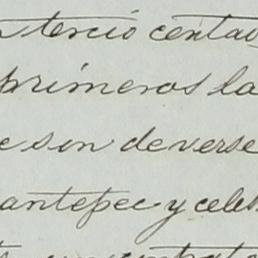 terció centav
primeros la
e sin deverse
antepec y celeb